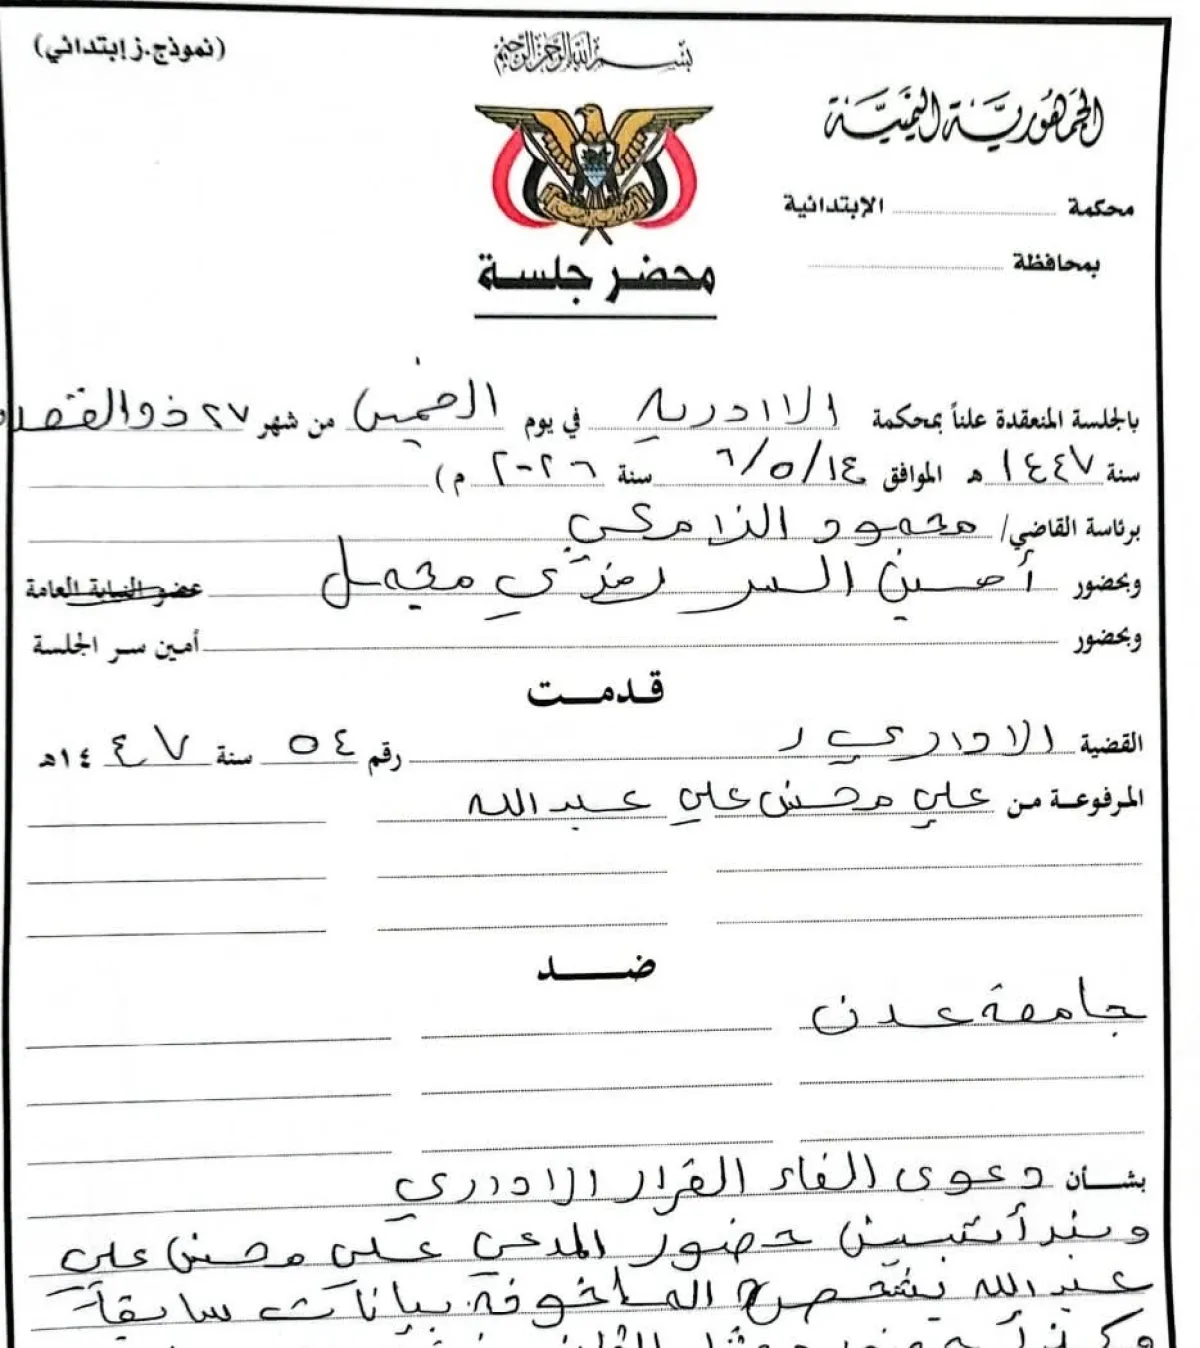 (نموذج.ز إبتدائي)
بسم الله الرحمن الرحيم
الجمهورية اليمنية
محكمة الإبتدائية
بمحافظة
محضر جلسة
بالجلسة المنعقدة علناً بمحكمة الادارية في يوم الخميس من شهر ٢٧ ذو القعدة
سنة ١٤٤٧ هـ الموافق ١٤/٥/٦ سنة ٢٠٢٦ م)
برئاسة القاضي/ محمود الزامكي
وبحضور أمين السر محمل عضو النيابة العامة
وبحضور أمين سر الجلسة
قدمت
القضية الاداري رقم ٥٤ سنة ١٤٤٧هـ
المرفوعة من علي محسن علي عبدالله
ضد
جامعة عدن
بشأن دعوى الغاء القرار الاداري
وبدأ تبين حضور المدعي علي محسن علي
عبدالله بشخصه المأخوذة بياناته سابقاً